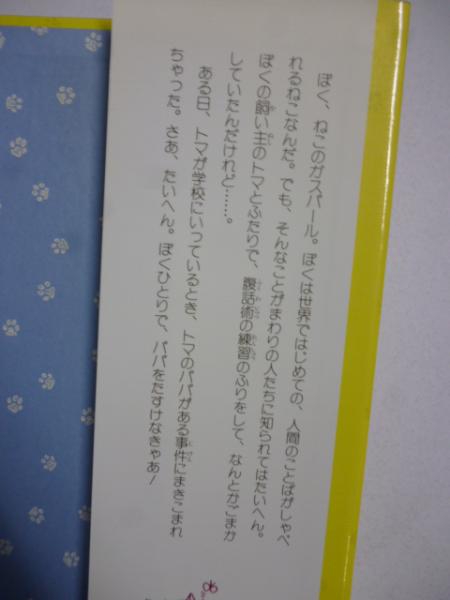 ぼく、ねこのガスパール。ぼくは世界ではじめての、人間のことばがしゃべ
れるねこなんだ。でも、そんなことがまわりの人たちに知られてはたいへん。
ぼくの飼い主のトマとふたりで、腹話術の練習のふりをして、なんとかごまか
していたんだけれど……。
ある日、トマが学校にいっているとき、トマのパパがある事件にまきこまれ
ちゃった。さあ、たいへん。ぼくひとりで、パパをたすけなきゃあ!